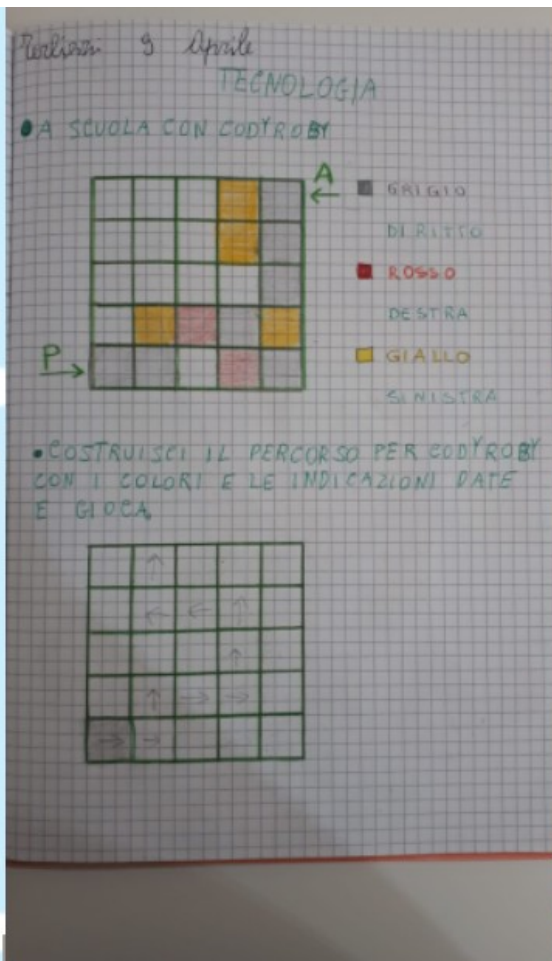 Terlizzi 9 Aprile
TECNOLOGIA
A SCUOLA CON CODYROBY
A
GRIGIO
DIRITTO
ROSSO
DESTRA
P
GIALLO
SINISTRA
COSTRUISCI IL PERCORSO PER CODYROBY
CON I COLORI E LE INDICAZIONI DATE
E GIOCA.